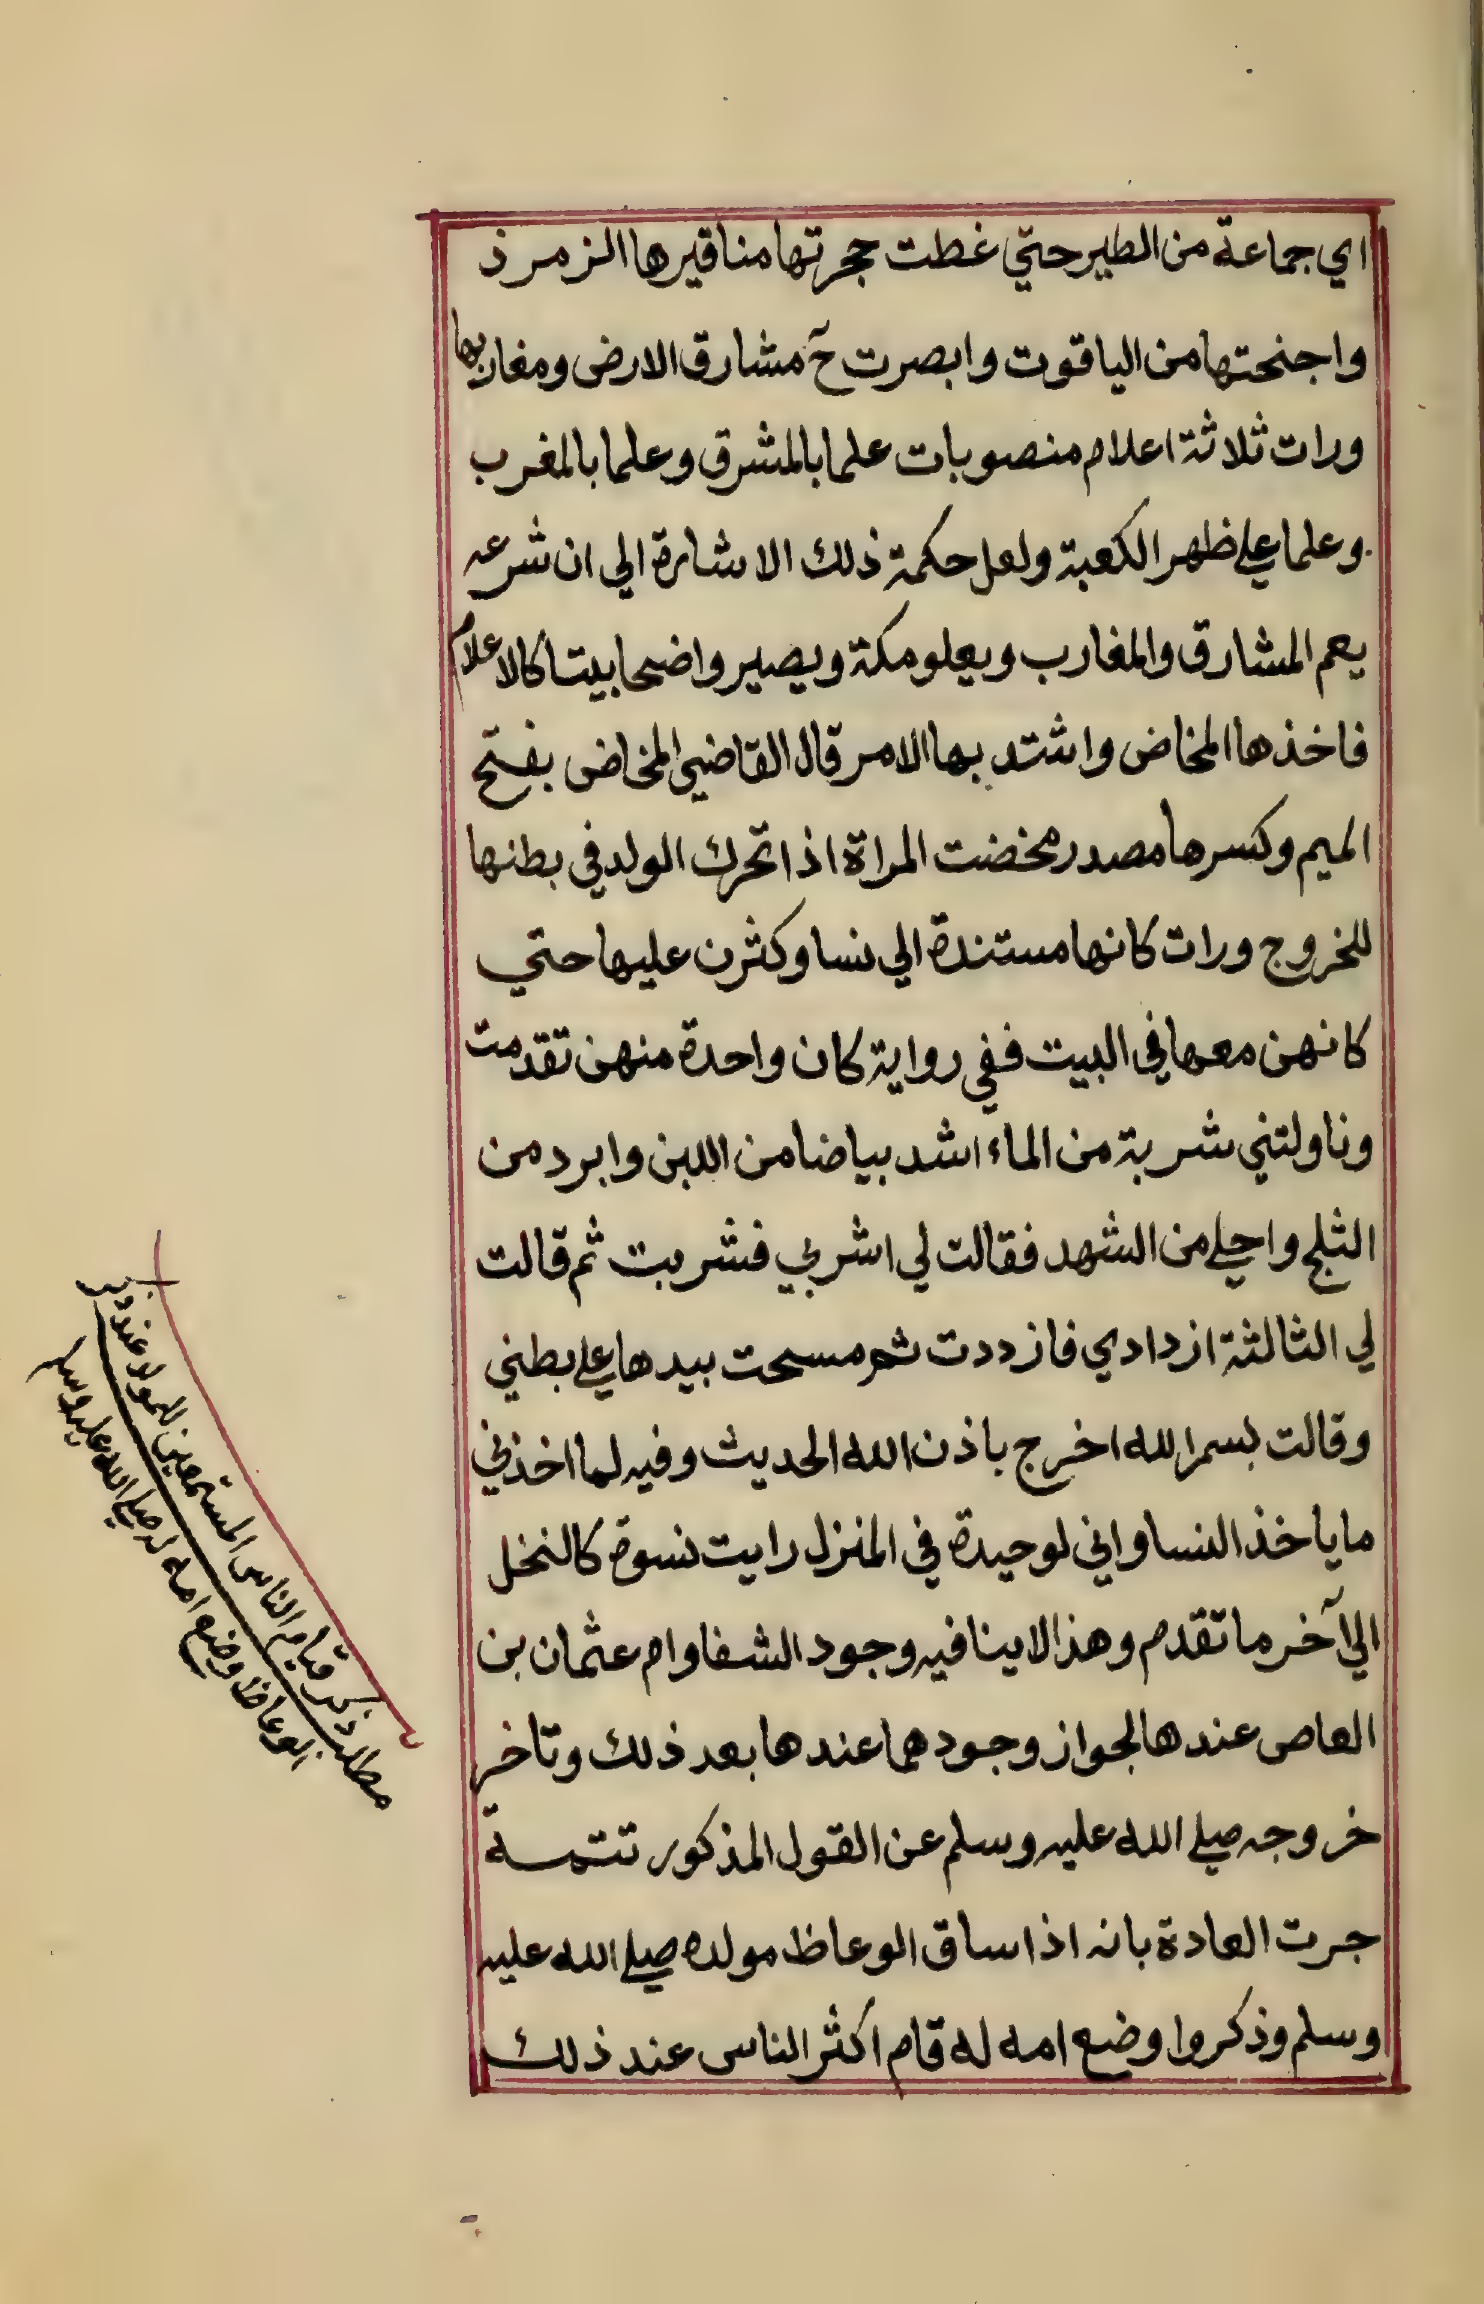 اي جماعة من الطير حتي غطت حجرتها مناقيرها الزمرذ
واجنحتها من الياقوت وابصرت حٓ مشارق الارض ومغاربها
ورات ثلاثة اعلام منصوبات علما بالمشرق وعلما بالمغرب
وعلما علي ظهر الكعبة ولعل حكمة ذلك الاشارة الي ان شرعه
يعم المشارق والمغارب ويعلو مكة ويصير واضحا بيتا كالاعلام
فاخذها المخاض واشتد بها الامر قال القاضي المخاض بفتح
الميم وكسرها مصدر مخضت المراة اذا تحرك الولد في بطنها
للخروج ورات كانها مستندة الي نسا وكثرن عليها حتي
كانهن معها في البيت ففي رواية كان واحدة منهن تقدمت
وناولتني شربة من الماء اشد بياضا من اللبن وابرد من
الثلج واحلي من الشهد فقالت لي اشربي فشربت ثم قالت
لي الثالثة ازدادي فازددت ثم مسحت بيدها علي بطني
وقالت بسم الله اخرج باذن الله الحديث وفيه لما اخذني
ما ياخذ النسا واني لوحيدة في المنزل رايت نسوة كالنخل
الي آخر ما تقدم وهذا لا ينافيه وجود الشفا وام عثمان بن
العاص عندها لجواز وجودهما عندها بعد ذلك وتاخر
خروجه صلي الله عليه وسلم عن القول المذكور تتمة
جرت العادة بانه اذا ساق الوعاظ مولده صلي الله عليه
وسلم وذكروا وضع امه له قام اكثر الناس عند ذلك
مطلب ذكر قيام الناس المستمعين للمولد عند ذكر
الوعاظ وضع امه له صلي الله عليه وسلم